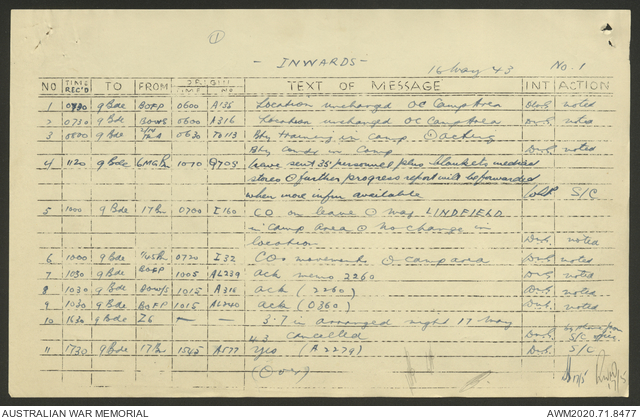 1
- INWARDS -
16 May 43 No. 1
NO TIME REC'D TO FROM TIME NO TEXT OF MESSAGE INT ACTION
1 0730 9 Bde BOFP 0600 A135 Location unchanged OC Camp Area noted
2 0730 9 Bde BOWS 0600 A316 Location unchanged OC Camp Area noted
3 0800 9 Bde 0630 training in Camp
in Camp noted
4 1120 9 Bde 6MG Bn 1070 have sent 35 personnel plus blankets medical
stores & further progress report will be forwarded
when more infm available S/C
5 1000 9 Bde 17 Bn 0700 I160 CO on leave LINDFIELD
in Camp Area No change in
location noted
6 1000 9 Bde 45 Bn 0720 I32 COs movements Camp area noted
7 1030 9 Bde BOFP 1005 AL239 ack memo 2260 noted
8 1030 9 Bde BOWS 1015 A316 ack (2260) noted
9 1030 9 Bde BOFP 1015 AL240 ack (0360) noted
10 1630 9 Bde — — 3.7 in arranged night 17 May
43 cancelled S/C
11 1730 9 Bde 17 Bn 1545 A177 Yes (A2279) S/C
(Over)
AUSTRALIAN WAR MEMORIAL AWM2020.71.8477